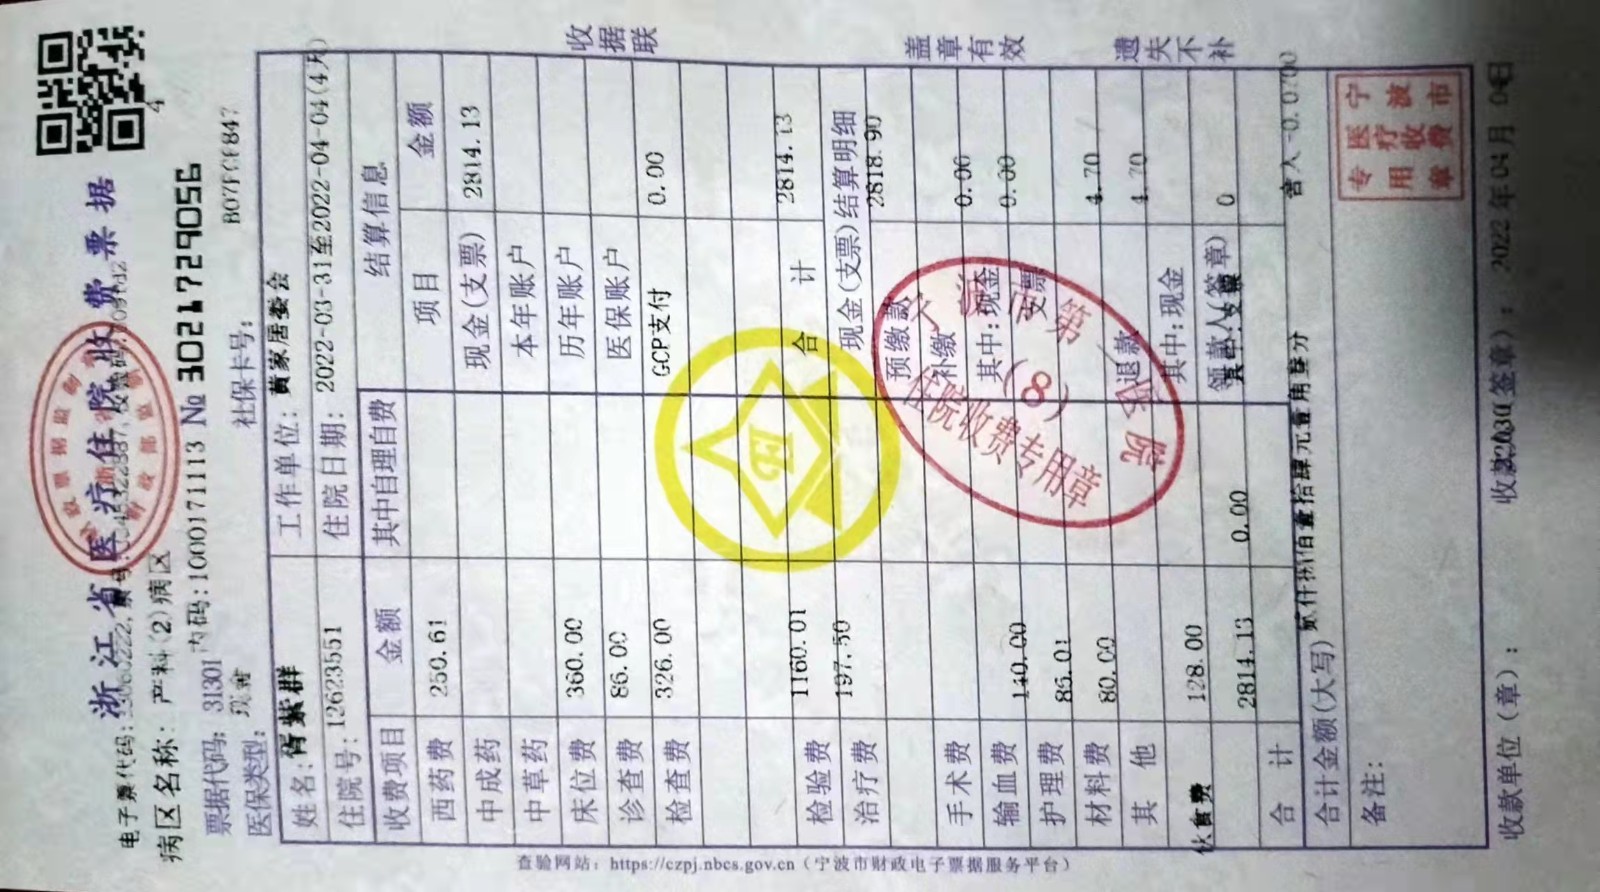 浙江省医疗住院收费票据
4
病区名称: 产科(2)病区
票据代码: 31301
内码:1000171113 № 3021729056
医保类型: 现金
社保卡号:
姓名: 胥紫群
工作单位: 黄家居委会
住院号: 12623551
住院日期: 2022-03-31至2022-04-04(4天)
收费项目 金额 其中自理自费 结算信息
项目 金额
西药费 250.61 现金(支票) 2814.13
中成药 本年账户
中草药 历年账户
床位费 360.00 医保账户
诊查费 86.00 GCP支付 0.00
检查费 326.00
合计 2814.13
检验费 1160.01 现金(支票)结算明细
治疗费 197.50 预缴款 2818.90
补缴 0.00
手术费 其中:现金 0.00
输血费 140.00 支票
护理费 86.01 退款 4.70
材料费 80.00 其中:现金 4.70
其他
伙食费 128.00 领款人(签章) 0
合计 2814.13 0.00
合计金额(大写) 贰仟捌佰壹拾肆元壹角叁分 舍入-0.0700
备注:
收款单位(章):
2022年04月04日
收据联
盖章有效
遗失不补
查验网站: https://czpj.nbcs.gov.cn (宁波市财政电子票据服务平台)
住院收费专用章
(8)
宁波市医疗收费专用章